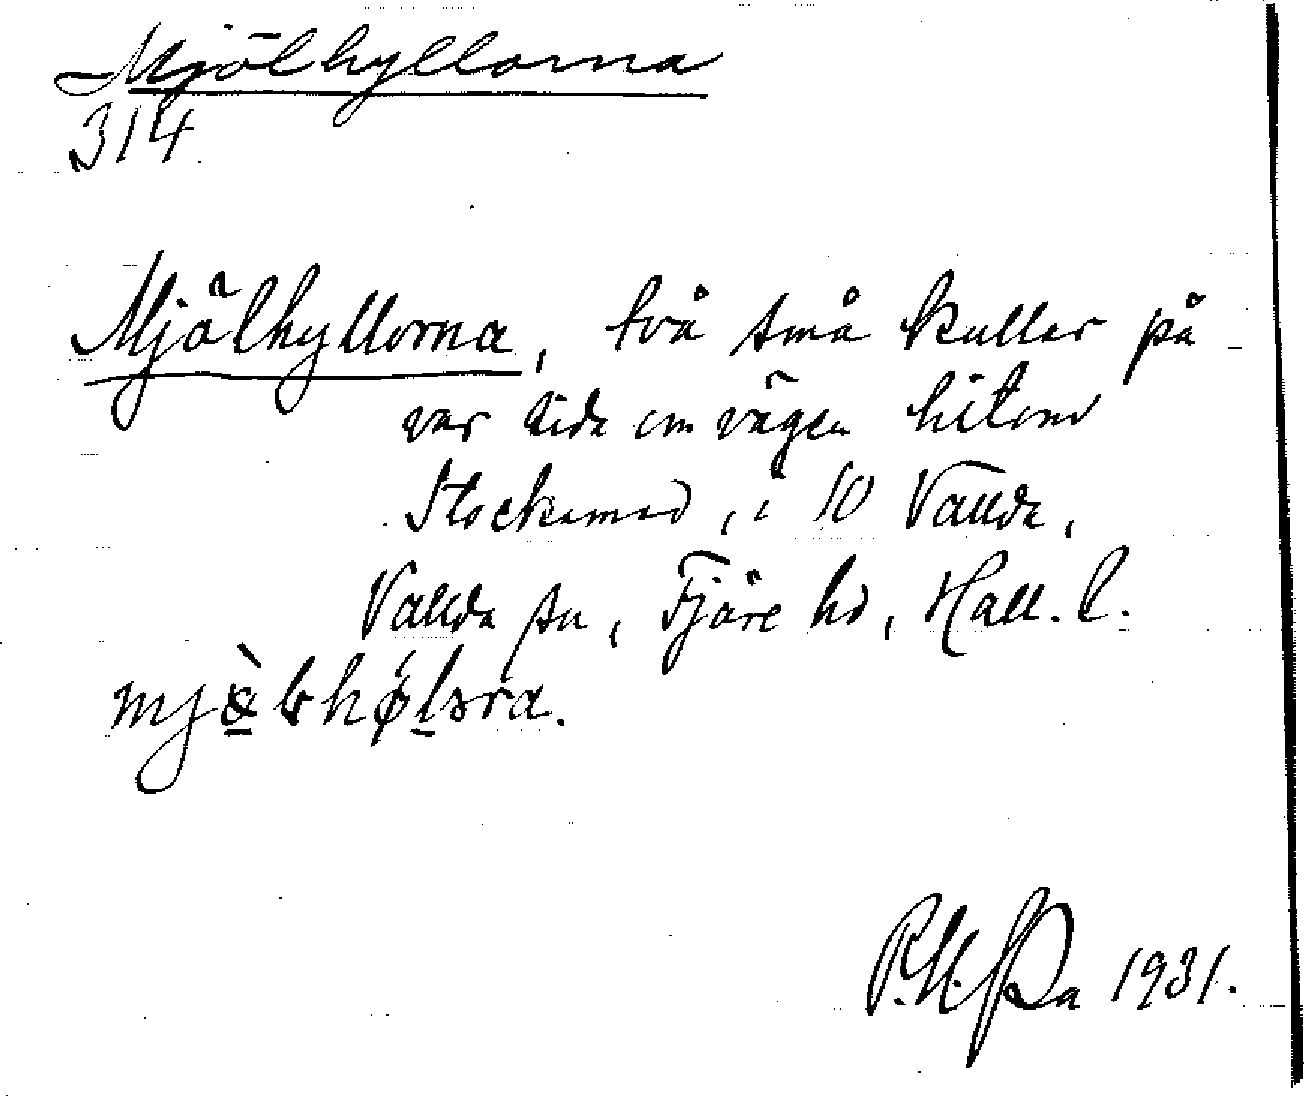 Mjölhyllorna
314
Mjölhyllorna, två små kullar på
var sida om vägen hitom
Stockamad, i 10 Vallda,
Vallda sn, Fjäre hd, Hall. l.
1931.